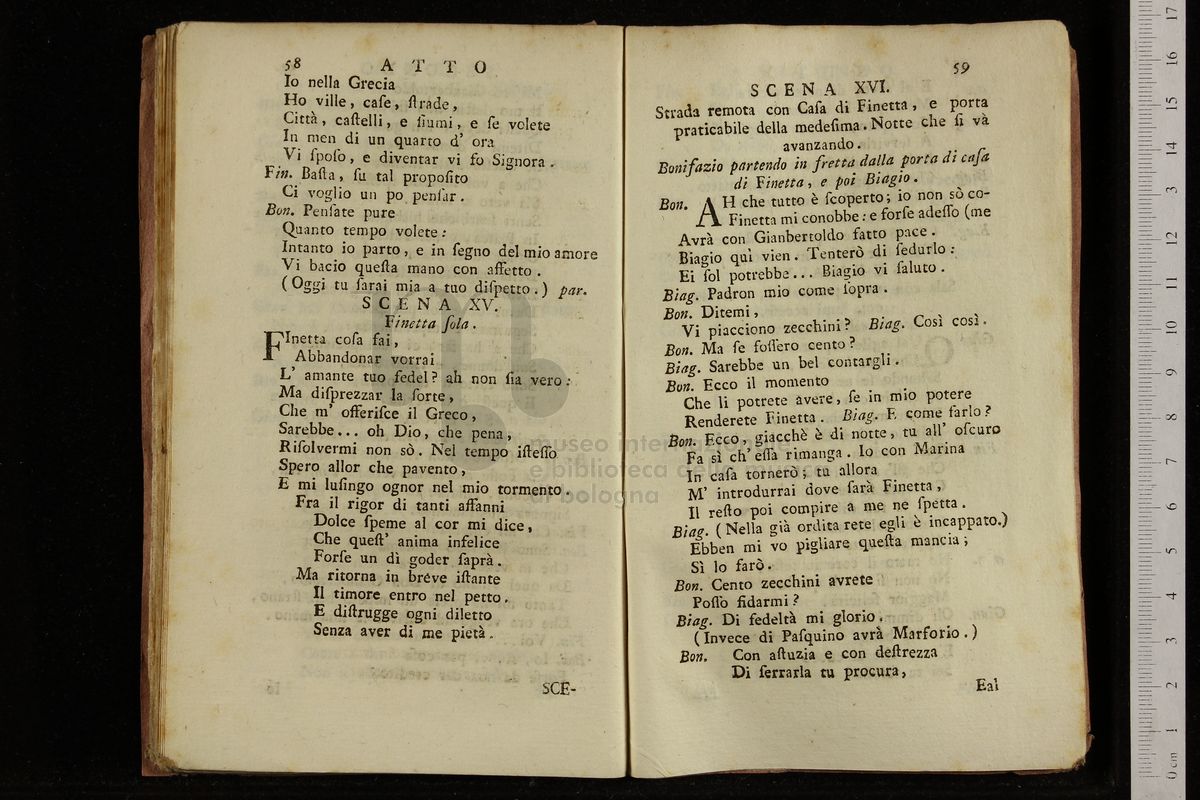 58 A T T O
Io nella Grecia
Ho ville, caſe, ſtrade,
Città, caſtelli, e fiumi, e ſe volete
In men di un quarto d' ora
Vi ſpoſo, e diventar vi fo Signora.
Fin. Baſta, ſu tal propoſito
Ci voglio un po penſar.
Bon. Penſate pure
Quanto tempo volete:
Intanto io parto, e in ſegno del mio amore
Vi bacio queſta mano con affetto.
(Oggi tu ſarai mia a tuo diſpetto.) par.
S C E N A XV.
Finetta ſola.
FInetta coſa fai,
Abbandonar vorrai
L' amante tuo fedel? ah non ſia vero:
Ma diſprezzar la ſorte,
Che m' offeriſce il Greco,
Sarebbe... oh Dio, che pena,
Riſolvermi non sò. Nel tempo iſteſſo
Spero allor che pavento,
E mi luſingo ognor nel mio tormento.
Fra il rigor di tanti affanni
Dolce ſpeme al cor mi dice,
Che queſt' anima infelice
Forſe un dì goder ſaprà.
Ma ritorna in breve iſtante
Il timore entro nel petto.
E diſtrugge ogni diletto
Senza aver di me pietà.
SCE-
59
S C E N A XVI.
Strada remota con Caſa di Finetta, e porta
praticabile della medeſima. Notte che ſi và
avanzando.
Bonifazio partendo in fretta dalla porta di caſa
di Finetta, e poi Biagio.
Bon. AH che tutto è ſcoperto; io non sò co-
Finetta mi conobbe: e forſe adeſſo (me
Avrà con Gianbertoldo fatto pace.
Biagio quì vien. Tenterò di ſedurlo:
Ei ſol potrebbe... Biagio vi ſaluto.
Biag. Padron mio come ſopra.
Bon. Ditemi,
Vi piacciono zecchini? Biag. Così così.
Bon. Ma ſe foſſero cento?
Biag. Sarebbe un bel contargli.
Bon. Ecco il momento
Che li potrete avere, ſe in mio potere
Renderete Finetta. Biag. E come farlo?
Bon. Ecco, giacchè è di notte, tu all' oſcuro
Fa sì ch' eſſa rimanga. Io con Marina
In caſa tornerò; tu allora
M' introdurrai dove ſarà Finetta,
Il reſto poi compire a me ne ſpetta.
Biag. (Nella già ordita rete egli è incappato.)
Ebben mi vo pigliare queſta mancia;
Sì lo farò.
Bon. Cento zecchini avrete
Poſſo fidarmi?
Biag. Di fedeltà mi glorio.
(Invece di Paſquino avrà Marforio.)
Bon. Con aſtuzia e con deſtrezza
Di ferrarla tu procura,
Eal
museo internazionale
e biblioteca della musica
di bologna
0 cm 1 2 3 4 5 6 7 8 9 10 11 12 13 14 15 16 17